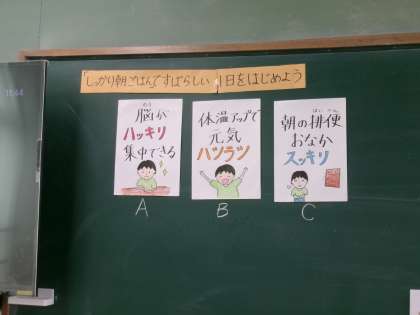 しっかり朝ごはんですばらしい1日をはじめよう
のう
脳が
ハッキリ
集中できる
体温アップで
元気
ハツラツ
はい べん
朝の排便
おなか
スッキリ
A
B
C